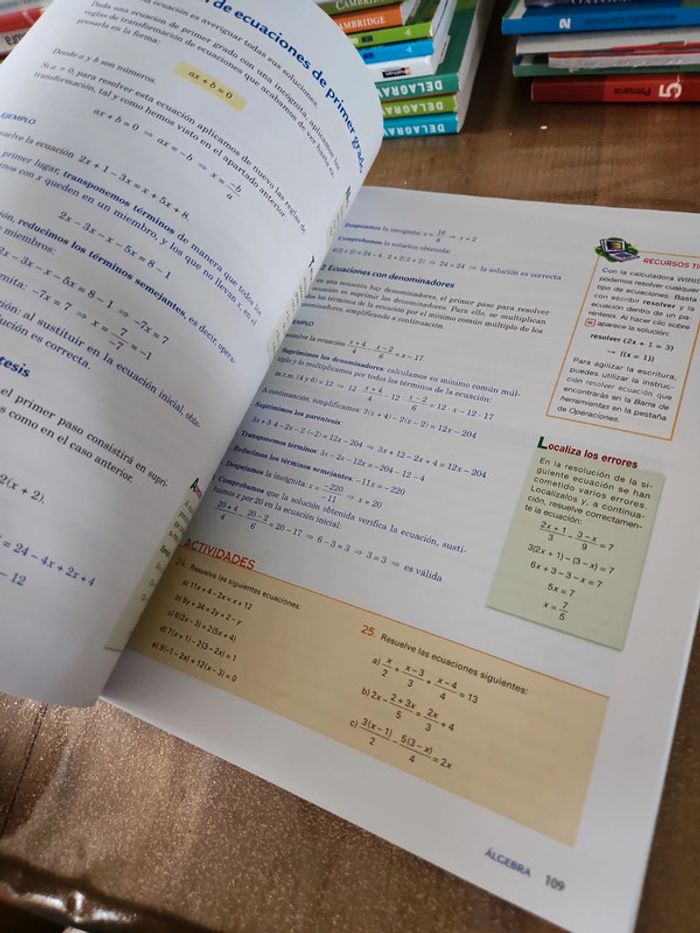 CAMBRIDGE
DELAGRAV
DELAGRAV
DELAGRAV
2
Primaria 5
n de ecuaciones de primer grado
ecuación es averiguar todas sus soluciones.
Dada una ecuación de primer grado con una incógnita, aplicamos las
reglas de transformación de ecuaciones que acabamos de ver hasta ex-
presarla en la forma:
ax + b = 0
Donde a y b son números.
Si a ≠ 0, para resolver esta ecuación aplicamos de nuevo las reglas de
transformación, tal y como hemos visto en el apartado anterior.
ax + b = 0 ⇒ ax = −b ⇒ x = −b/a
EJEMPLO
suelve la ecuación 2x + 1 − 3x = x + 5x + 8.
primer lugar, transponemos términos de manera que todos los
nos con x queden en un miembro, y los que no llevan x, en el
2x − 3x − x − 5x = 8 − 1
ión, reducimos los términos semejantes, es decir, opera-
miembros:
2x − 3x − x − 5x = 8 − 1 ⇒ −7x = 7
nita: −7x = 7 ⇒ x = 7/−7 = −1
ción: al sustituir en la ecuación inicial, obte-
ución es correcta.
tesis
el primer paso consistirá en supri-
s como en el caso anterior.
2(x + 2).
= 24 − 4x + 2x + 4
− 12
Despejamos la incógnita: x = 16/8 ⇒ x = 2
Comprobamos la solución obtenida:
6(2 + 2) = 24 − 4 · 2 + 2(2 + 2) ⇒ 24 = 24 ⇒ la solución es correcta
2 Ecuaciones con denominadores
una ecuación hay denominadores, el primer paso para resolver
ecuación es suprimir los denominadores. Para ello, se multiplican
dos los términos de la ecuación por el mínimo común múltiplo de los
nominadores, simplificando a continuación.
EMPLO
esuelve la ecuación x + 4/4 − x − 2/6 = x − 17.
Suprimimos los denominadores: calculamos su mínimo común múl-
tiplo y lo multiplicamos por todos los términos de la ecuación:
m.c.m. (4 y 6) = 12 ⇒ 12 · x + 4/4 − 12 · x − 2/6 = 12 · x − 12 · 17
A continuación, simplificamos: 3(x + 4) − 2(x − 2) = 12x − 204
Suprimimos los paréntesis:
3x + 3·4 − 2x − 2·(−2) = 12x − 204 ⇒ 3x + 12 − 2x + 4 = 12x − 204
Transponemos términos: 3x − 2x − 12x = −204 − 12 − 4
Reducimos los términos semejantes: −11x = −220
Despejamos la incógnita: x = −220/−11 ⇒ x = 20
Comprobamos que la solución obtenida verifica la ecuación, susti-
tuimos x por 20 en la ecuación inicial:
20 + 4/4 − 20 − 2/6 = 20 − 17 ⇒ 6 − 3 = 3 ⇒ 3 = 3 ⇒ es válida
ACTIVIDADES
24. Resuelve las siguientes ecuaciones:
a) 11x + 4 − 2x = x + 12
b) 9y + 34 = 2y + 2 − y
c) 6(2x − 3) = 2(5x + 4)
d) 7(x + 1) − 2(3 − 2x) = 1
e) 9(−1 − 2x) + 12(x − 3) = 0
25. Resuelve las ecuaciones siguientes:
a) x/2 + x − 3/3 + x − 4/4 = 13
b) 2x − 2 + 3x/5 = 2x/3 + 4
c) 3(x − 1)/2 − 5(3 − x)/4 = 2x
RECURSOS TI
Con la calculadora WIRIS
podemos resolver cualquier
tipo de ecuaciones. Basta
con escribir resolver y la
ecuación dentro de un pa-
réntesis. Al hacer clic sobre
= aparece la solución:
resolver (2x + 1 = 3)
→ {{x = 1}}
Para agilizar la escritura,
puedes utilizar la instruc-
ción resolver ecuación que
encontrarás en la Barra de
herramientas en la pestaña
de Operaciones.
Localiza los errores
En la resolución de la si-
guiente ecuación se han
cometido varios errores.
Localízalos y, a continua-
ción, resuelve correctamen-
te la ecuación:
2x + 1/3 − 3 − x/9 = 7
3(2x + 1) − (3 − x) = 7
6x + 3 − 3 − x = 7
5x = 7
x = 7/5
ÁLGEBRA 109